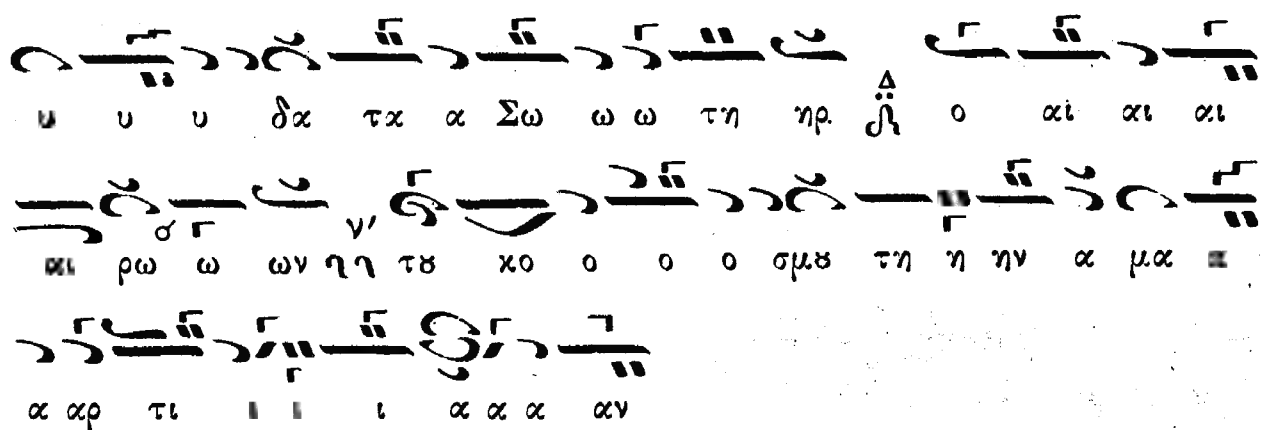 υ υ υ δα τα α Σω ω ω τη ηρ. Δ ο αὶ αι αι
αι ρω ω ων νʹ τȣ κο ο ο ο σμȣ τη η ην α μα α
α αρ τι ι ι ι α α α αν